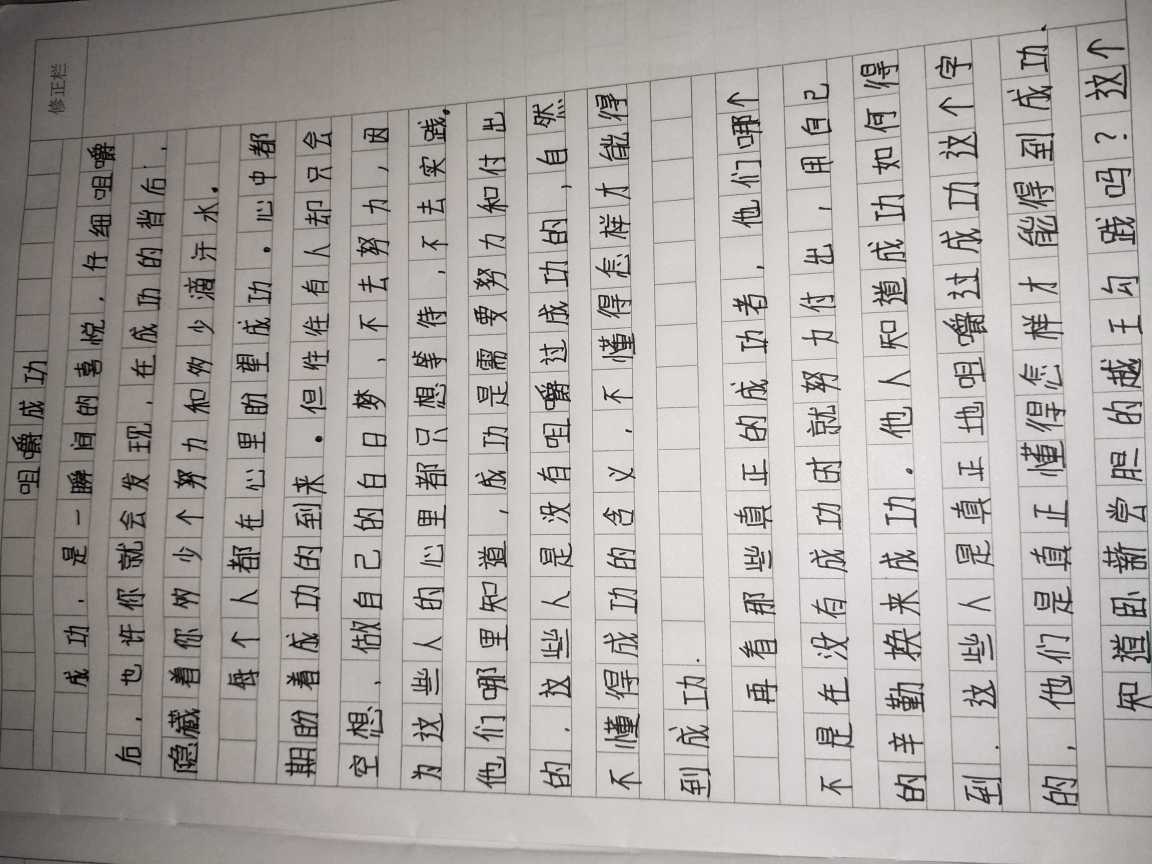 修正栏
咀嚼成功
成功，是一瞬间的喜悦，仔细咀嚼
后，也许你就会发现，在成功的背后，
隐藏着你多少个努力和多少滴汗水。
每个人都在心里盼望成功。心中都
期盼着成功的到来。但往往有人却只会
空想，做自己的白日梦，不去努力，因
为这些人的心里都只想等待，不去实践。
他们哪里知道，成功是需要努力和付出
的，这些人是没有咀嚼过成功的，自然
不懂得成功的含义，不懂得怎样才能得
到成功。
再看那些真正的成功者，他们哪个
不是在没有成功时就努力付出，用自己
的辛勤换来成功。他人知道成功如何得
到。这些人是真正地咀嚼过成功这个字
的，他们是真正懂得怎样才能得到成功。
知道卧薪尝胆的越王勾践吗？这个